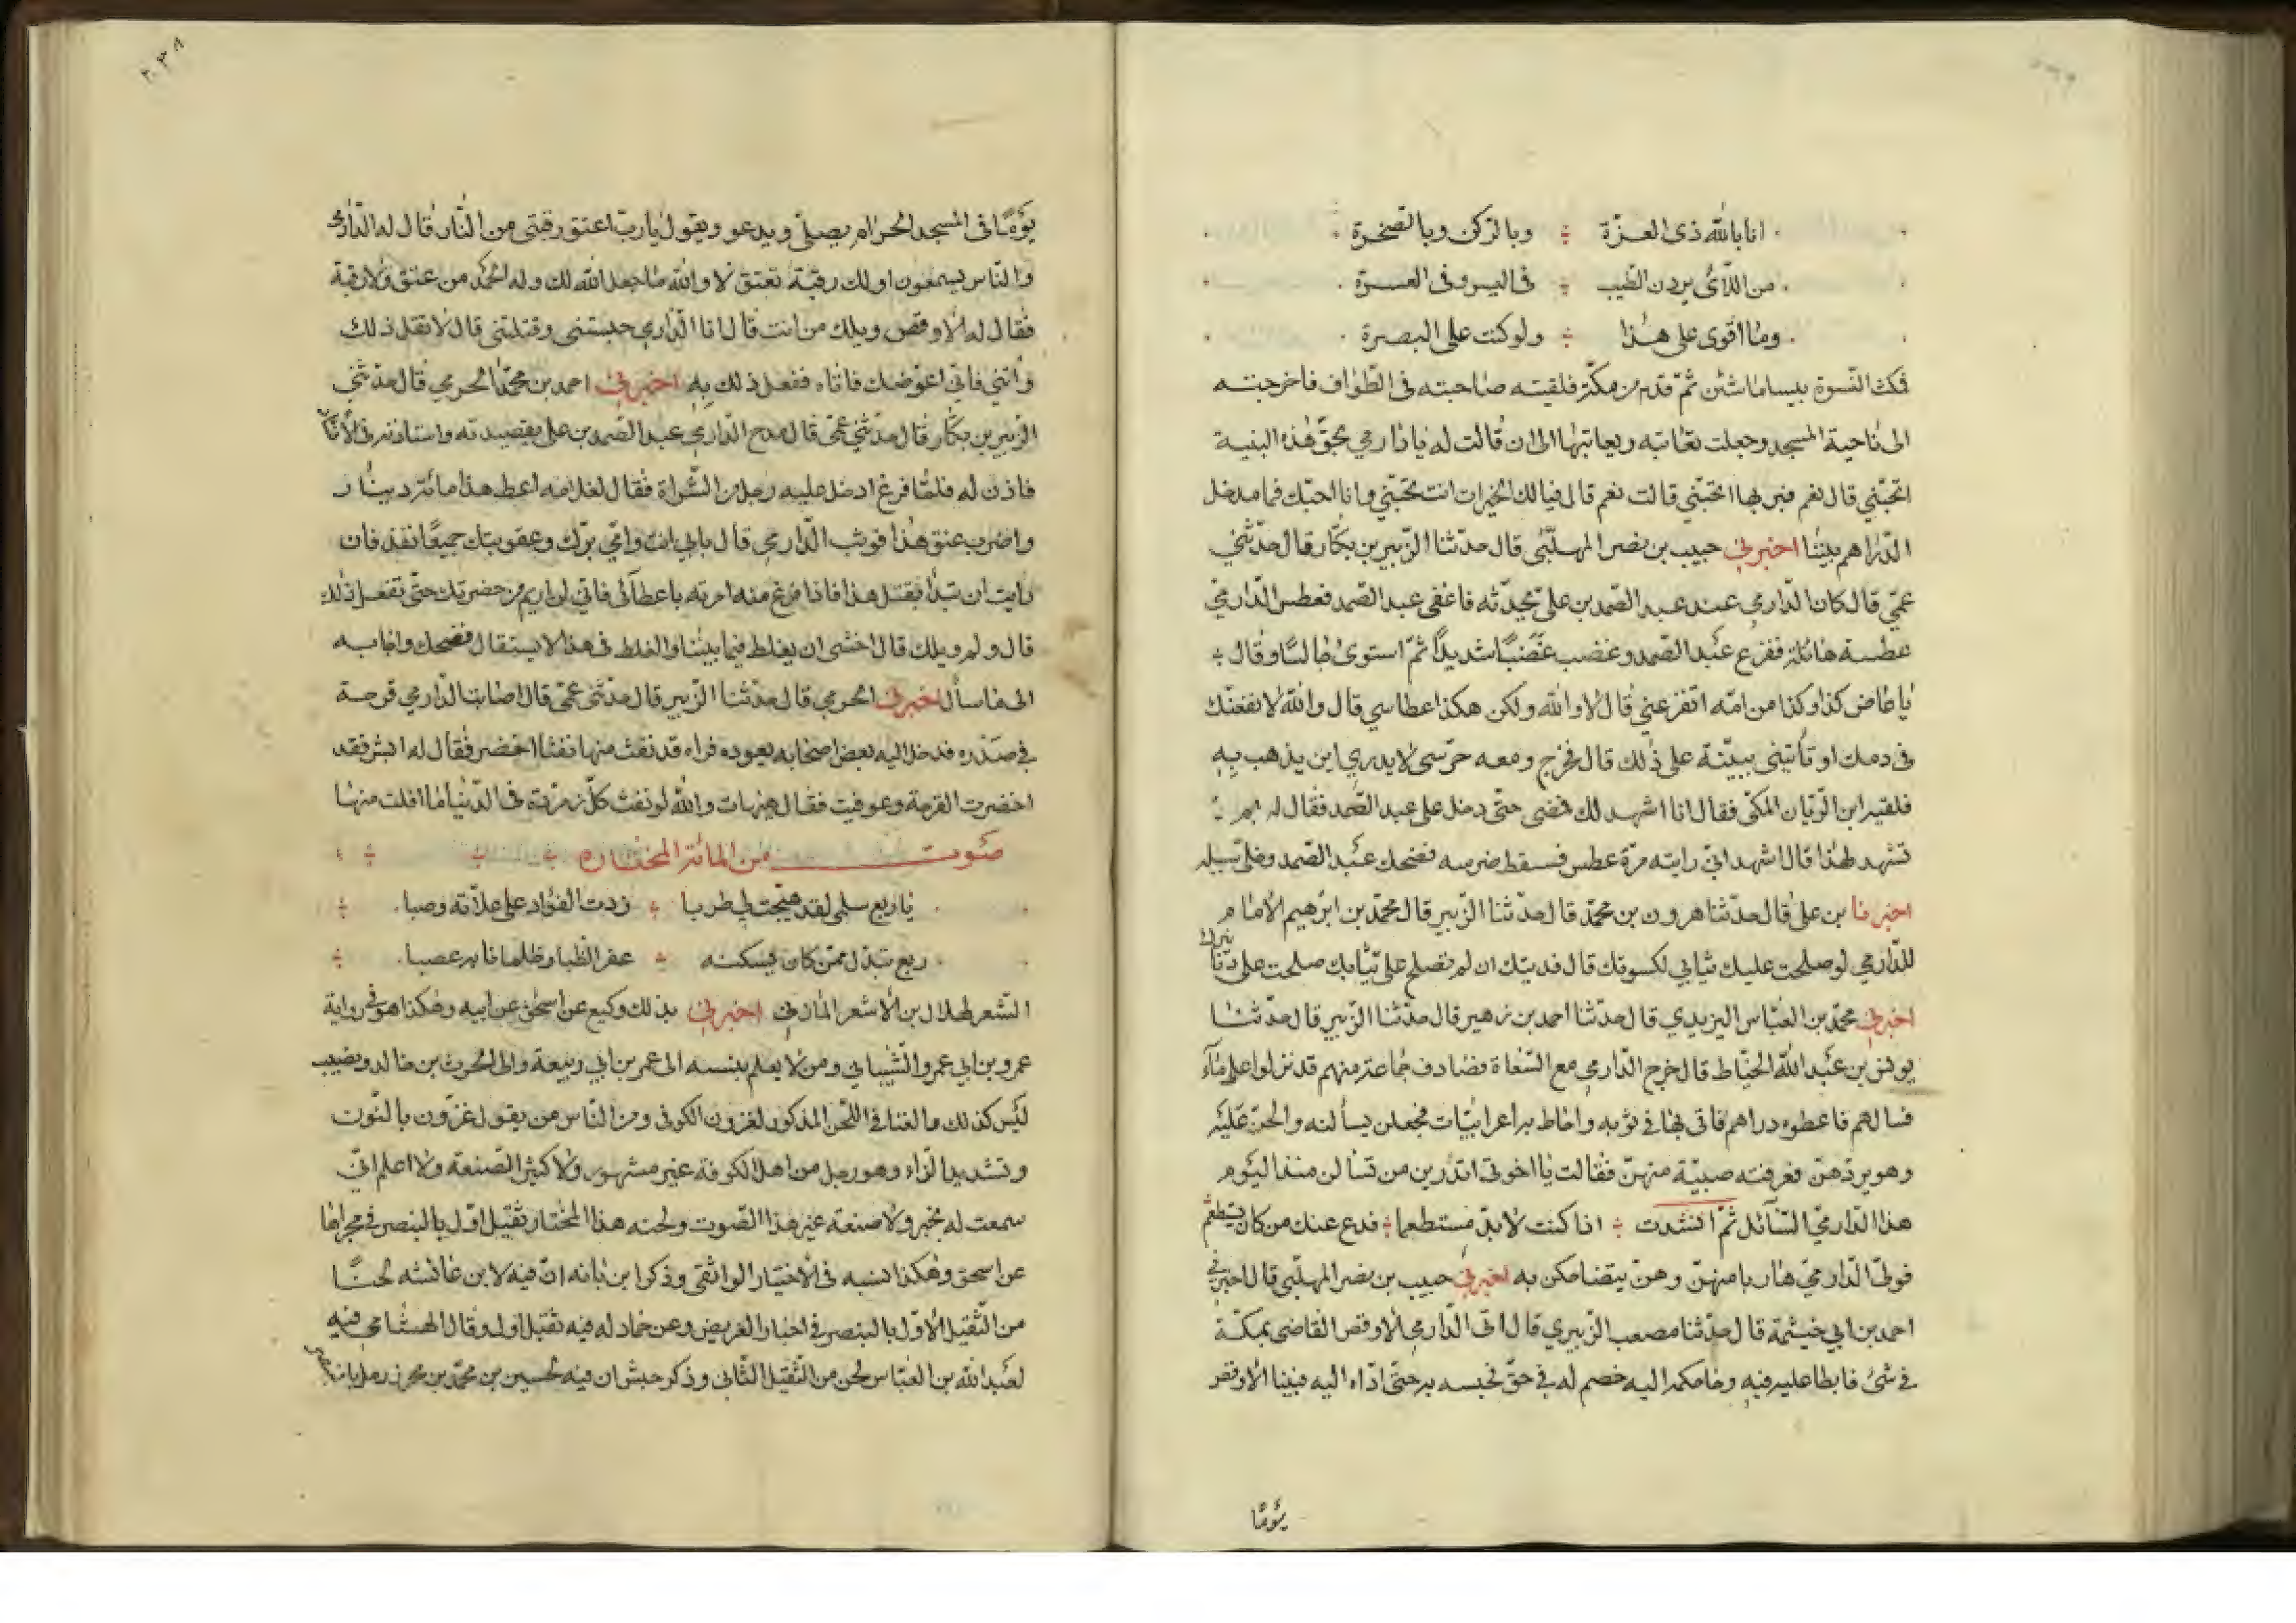 انا بالله ذى العزّة ÷ وبالركن وبالصخرة
من اللّائى يردن الطّيب ÷ فى اليسر وفى العسرة
وما اقوى على هذا ÷ ولو كنت على البصرة
فكث النّسوة بيساماشئن ثمّ قدم من مكّة فلقيته صاحبته فى الطّواف فاخرجته
الى ناحية المسجد وجعلت تعاتبه ويعاتبها الى ان قالت له يا دارمي بحقّ هذه البنية
اتحبّني قال نعم فبربها اتحبّيني قالت نعم قال فيالك الخيرات انت تحبّيني وانا احبّك فما مدخل
الدّراهم بيننا اخبرني حبيب بن نصر المهلّبى قال حدّثنا الزّبير بن بكّار قال حدّثني
عمّي قال كان الدّارمي عند عبد الصّمد بن علىّ يحدّثه فاغفى عبد الصّمد فعطس الدّارميّ
عطسة هائلة ففزع عبد الصّمد وغضب غضبًا شديدًا ثمّ استوى جالسًا وقال ÷
يا عاض كذا وكذا من امّه اتفزعني قال لا والله ولكن هكذا عطاسي قال والله لانقعنّك
فى دمك او تأتينى ببيّنة على ذلك قال فخرج ومعه حرّسى لا يدري اين يذهب به
فلقيه ابن الرّيان المكّى فقال انا اشهد لك فمضى حتّى دخل على عبد الصّمد فقال له بم
تشهد لهذا قال اشهد انّي رايته مرّة عطس فسقط ضرسه فضحك عبد الصّمد وخلّى سبيله
اخبرنا بن على قال حدّثنا هرون بن محمّد قال حدّثنا الزّبير قال محمّد بن ابرٰهيم الامام
للدّارمي لو صلحت عليك ثيابي لكسوتك قال فديتك ان لم تصلح علىّ ثيابك صلحت علىّ دنانيرك
اخبرني محمّد بن العبّاس اليزيدي قال حدّثنا احمد بن زهير قال حدّثنا الزّبير قال حدّثنا
يونس بن عبد الله الخيّاط قال خرج الدّارمي مع السّعاة فصادف جماعة منهم قد نزلوا على مآء
فسالهم فاعطوه دراهم فاتى بها فى ثوبه واحاط به اعرابيّات فجعلن يسألنه والححن عليه
وهو يردّهنّ فعرفته صبيّة منهنّ فقالت يا اخوتى اتدرين من تسألن منذ اليوم
هذا الدّارميّ السّآئل ثمّ انشدت ÷ اذا كنت لا بدّ مستطعما ÷ فدع عنك من كان يستطعم
فولّى الدّارميّ هاربا منهنّ وهنّ يتضاحكن به اخبرني حبيب بن نصر المهلّبى قال اخبرنى
احمد بن ابي خيثمة قال حدّثنا مصعب الزّبيري قال اتى الدّارمي الاوقص القاضى بمكّة
في شئ فابطا عليه فيه وحاكمه اليه خصم له في حقّ فحبسه به حتّى ادّاه اليه فبينا الاوقص
يومًا
٢٠٣٨
يومًا فى المسجد الحرام يصلّى ويدعو ويقول يا ربّ اعتق رقبتى من النّار قال له الدّارمى
والنّاس يسمعون اولك رقبة تعتق لا والله ما جعل الله لك وله الحمد من عتق ولا رقبة
فقال له الاوقص ويلك من انت قال انا الدّارمي حبستنى وقتلتنى قال لا تقل ذلك
وأتني فانّى اعوّضك فاتاه ففعل ذلك به اخبرني احمد بن محمّد الحرمي قال حدّثني
الزّبير بن بكّار قال حدّثني عمّى قال مدح الدّارمي عبد الصّمد بن على بقصيدته واستاذنه فى الانشاد
فاذن له فلمّا فرغ ادخل عليه رجل من الشّراة فقال لغلامه اعط هذا مائة دينار
واضرب عنق هذا فوثب الدّارمي قال بابي انت وامّي برّك وعقوبتك جميعًا نقد فان
رايت ان تبدأ بقتل هذا فاذا فرغ منه امرته باعطآئى فانّي لن اريم من حضرتك حتّى تفعل ذلك
قال ولم ويلك قال اخشى ان يغلط فيما بيننا والغلط فى هذا لا يستقال فضحك واجابه
الى ما سأل اخبرنى الحرمي قال حدّثنا الزّبير قال حدّثنى عمّى قال اصابت الدّارمي قرحة
في صدره فدخل اليه بعض اصحابه يعوده فراه قد نفث منها نفثا اخضر فقال له ابشر فقد
اخضرت القرحة وعوفيت فقال هيهات والله لو نفث كلّ زمرّدة فى الدّنيا ما افلت منها
صوت من المائة المختاره
يا ربع سلمى لقد هيّجت لي طربا ÷ زدت الفؤاد على علاّته وصبا
ربع تبدّل ممّن كان يسكنه ÷ عفر الظّبا وظلمانا به عصبا
الشّعر لهلال بن الاشعر المازني اخبرني بذلك وكيع عن اسحٰق عن ابيه وهكذا هو في رواية
عمرو بن ابي عمرو الشّيباني ومن لا يعلم ينسبه الى عمر بن ابي ربيعة والى الحرث بن خالد ونصيب
ليس كذلك والغنا في اللّحن المذكور لغزون الكوفى ومن النّاس من يقول غزّون بالنّون
وتشديد الزّاء وهو رجل من اهل الكوفة غير مشهور ولا كثير الصّنعة ولا اعلم انّي
سمعت له بخبر ولا صنعة غير هذا الصّوت ولحنه هذا المختار ثقيل اوّل بالبنصر في مجراها
عن اسحق وهكذا نسبه فى الاختيار الواثقى وذكر ابن بانه انّ فيه لابن عائشه لحنًا
من الثّقيل الاوّل بالبنصر في اخبار الغريض وعن حماد له فيه ثقيل اول وقال الهشامي فيه
لعبد الله بن العبّاس لحن من الثّقيل الثّاني وذكر حبش ان فيه لحسين بن محمّد بن محرز رمل بالبنصر